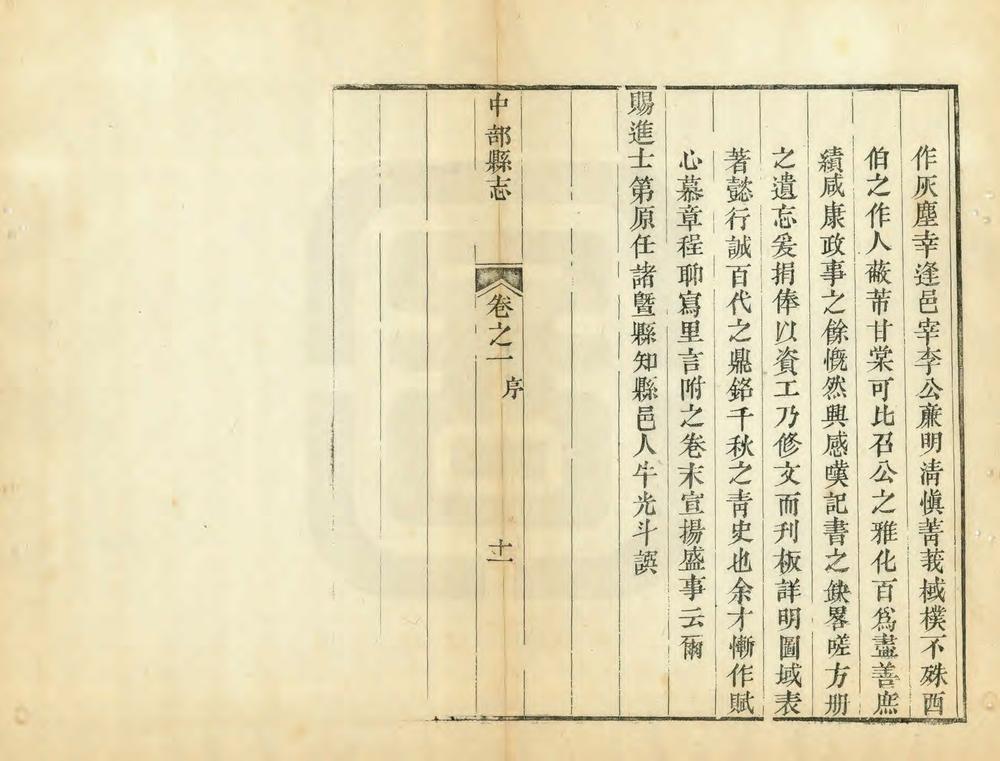 作灰塵幸逢邑宰李公廉明清愼菁莪棫樸不殊酉
伯之作人蔽芾甘棠可比召公之雅化百爲盡善庶
績咸康政事之餘慨然興感嘆記書之缺畧嗟方册
之遺忘爰捐俸以資工乃修文而刋板詳明圖域表
著懿行誠百代之鼎銘千秋之青史也余才慚作賦
心慕章程聊寫里言附之卷末宣揚盛事云爾
賜進士第原任諸曁縣知縣邑人牛光斗譔
中部縣志
卷之一
序
十一